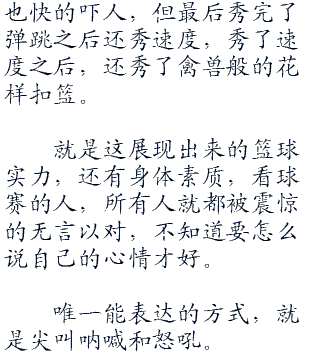 也快的吓人，但最后秀完了
弹跳之后还秀速度，秀了速
度之后，还秀了禽兽般的花
样扣篮。
就是这展现出来的篮球
实力，还有身体素质，看球
赛的人，所有人就都被震惊
的无言以对，不知道要怎么
说自己的心情才好。
唯一能表达的方式，就
是尖叫呐喊和怒吼。